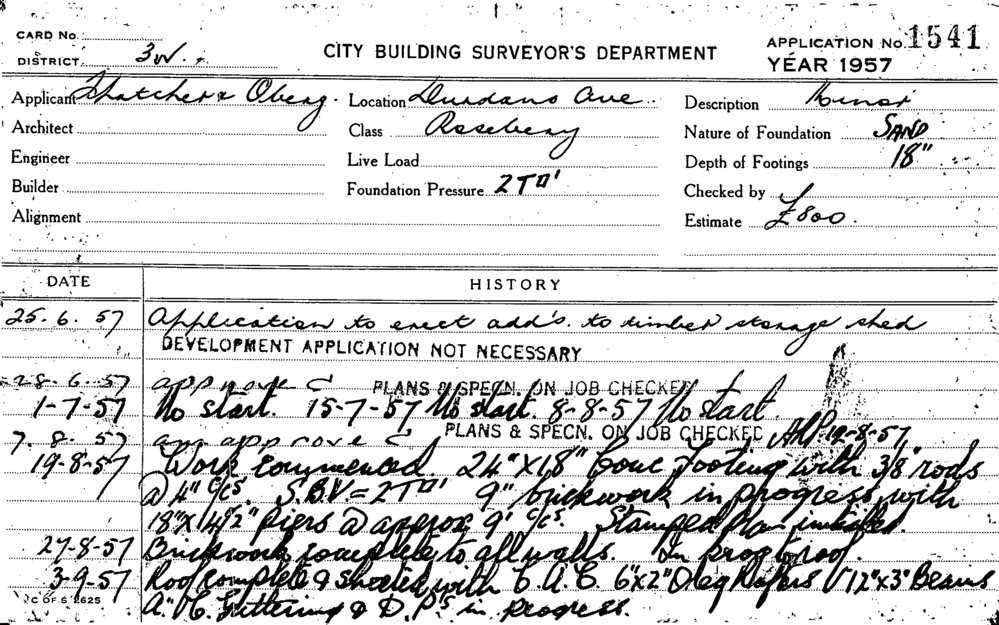 CARD No.
DISTRICT 3W.
CITY BUILDING SURVEYOR'S DEPARTMENT
APPLICATION No. 1541
YEAR 1957
Applicant Thatcher & Oberg. Location Durdans Ave. Description Minor
Architect Class Rosebery Nature of Foundation SAND
Engineer Live Load Depth of Footings 18"
Builder Foundation Pressure 2T□' Checked by
Alignment Estimate £800.
DATE HISTORY
25.6.57 Application to erect add's. to timber storage shed
DEVELOPMENT APPLICATION NOT NECESSARY
28.6.57 approve C PLANS & SPECN. ON JOB CHECKED
1-7-57 No start. 15-7-57 No start. 8-8-57 No start.
7.8.57 am approve C PLANS & SPECN. ON JOB CHECKED 19-8-57
19-8-57 Work commenced. 24"X18" Conc Footing with 3/8" rods
@ 4" c/cs. S.B.V. = 2T□' 9" brickwork in progress, with
18"X14½" Piers @ approx 9' c/cs. Stamped Plan initialed
27-8-57 Brickwork complete to all walls. In prog to roof.
3-9-57 Roof complete & sheeted with C.A.C. 6"x2" Oreg Rafters 12"x3" Beams
C OF S 2625 A.C. Guttering & D.P's in progress.